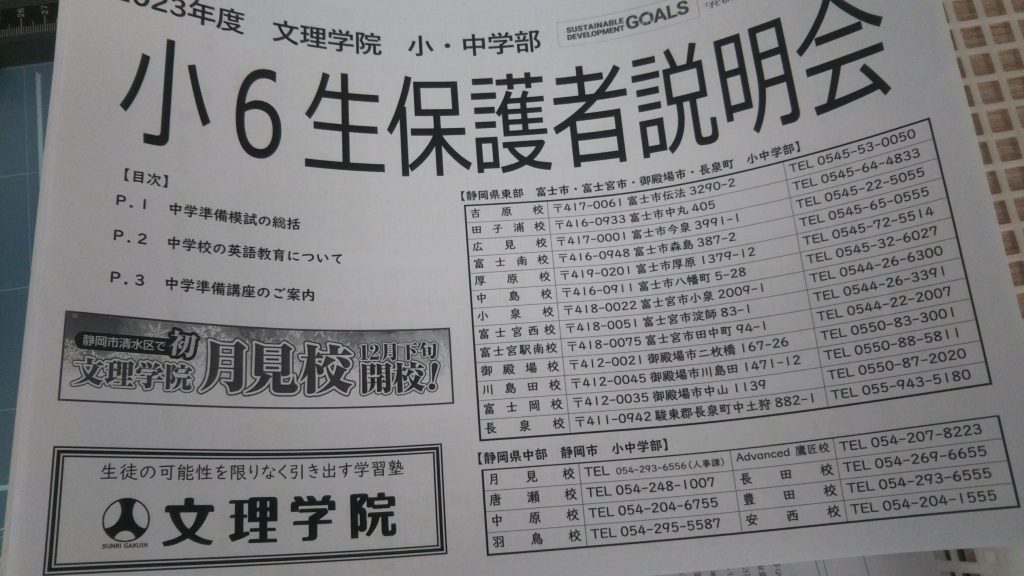 2023年度 文理学院 小・中学部
SUSTAINABLE
DEVELOPMENT GOALS
小6生保護者説明会
【目次】
P.1 中学準備模試の総括
P.2 中学校の英語教育について
P.3 中学準備講座のご案内
静岡市清水区で初
文理学院 月見校 12月下旬開校!
生徒の可能性を限りなく引き出す学習塾
文理学院
BUNRI GAKUIN
【静岡県東部 富士市・富士宮市・御殿場市・長泉町 小中学部】
吉原校 〒417-0061 富士市伝法 3290-2 TEL 0545-53-0050
田子浦校 〒416-0933 富士市中丸 405 TEL 0545-64-4833
広見校 〒417-0001 富士市今泉 3991-1 TEL 0545-22-5055
富士南校 〒416-0948 富士市森島 387-2 TEL 0545-65-0555
厚原校 〒419-0201 富士市厚原 1379-12 TEL 0545-72-5514
中島校 〒416-0911 富士市八幡町 5-28 TEL 0545-32-6027
小泉校 〒418-0022 富士宮市小泉 2009-1 TEL 0544-26-6300
富士宮西校 〒418-0051 富士宮市淀師 83-1 TEL 0544-26-3391
富士宮駅南校 〒418-0075 富士宮市田中町 94-1 TEL 0544-22-2007
御殿場校 〒412-0021 御殿場市二枚橋 167-26 TEL 0550-83-3001
川島田校 〒412-0045 御殿場市川島田 1471-12 TEL 0550-88-5811
富士岡校 〒412-0035 御殿場市中山 1139 TEL 0550-87-2020
長泉校 〒411-0942 駿東郡長泉町中土狩 882-1 TEL 055-943-5180
【静岡県中部 静岡市 小中学部】
月見校 TEL 054-293-6556(人事課) Advanced 鷹匠校 TEL 054-207-8223
唐瀬校 TEL 054-248-1007 長田校 TEL 054-269-6655
中原校 TEL 054-204-6755 豊田校 TEL 054-293-6555
羽鳥校 TEL 054-295-5587 安西校 TEL 054-204-1555